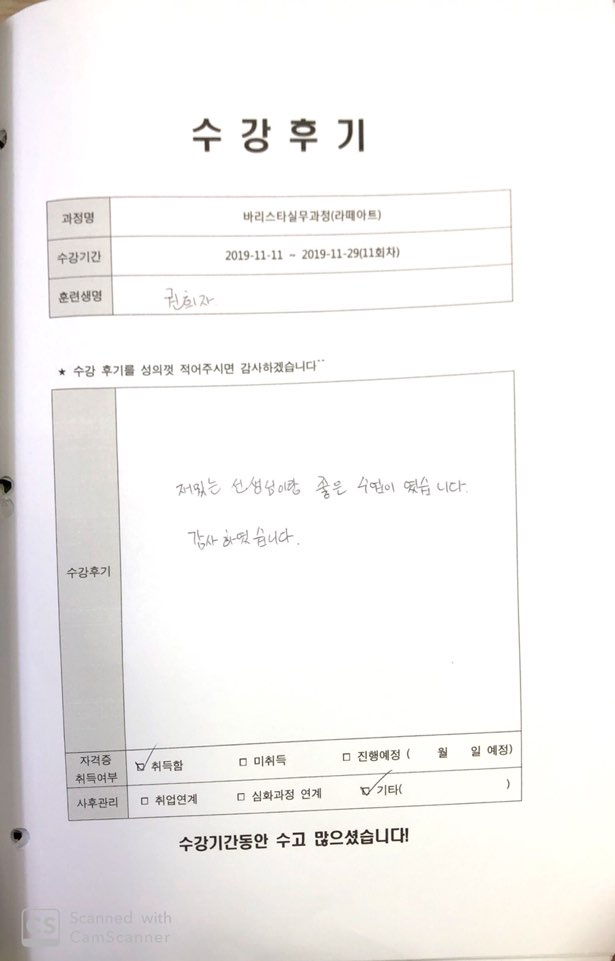 수강후기
과정명 바리스타실무과정(라떼아트)
수강기간 2019-11-11 ~ 2019-11-29(11회차)
훈련생명 권희자
★ 수강 후기를 성의껏 적어주시면 감사하겠습니다^^
저밌는 선생님이랑 좋은 수업이 였습니다.
감사하였습니다.
수강후기
자격증 취득여부 ☑ 취득함 □ 미취득 □ 진행예정 ( 월 일 예정)
사후관리 □ 취업연계 □ 심화과정 연계 ☑ 기타( )
수강기간동안 수고 많으셨습니다!
CS Scanned with
CamScanner